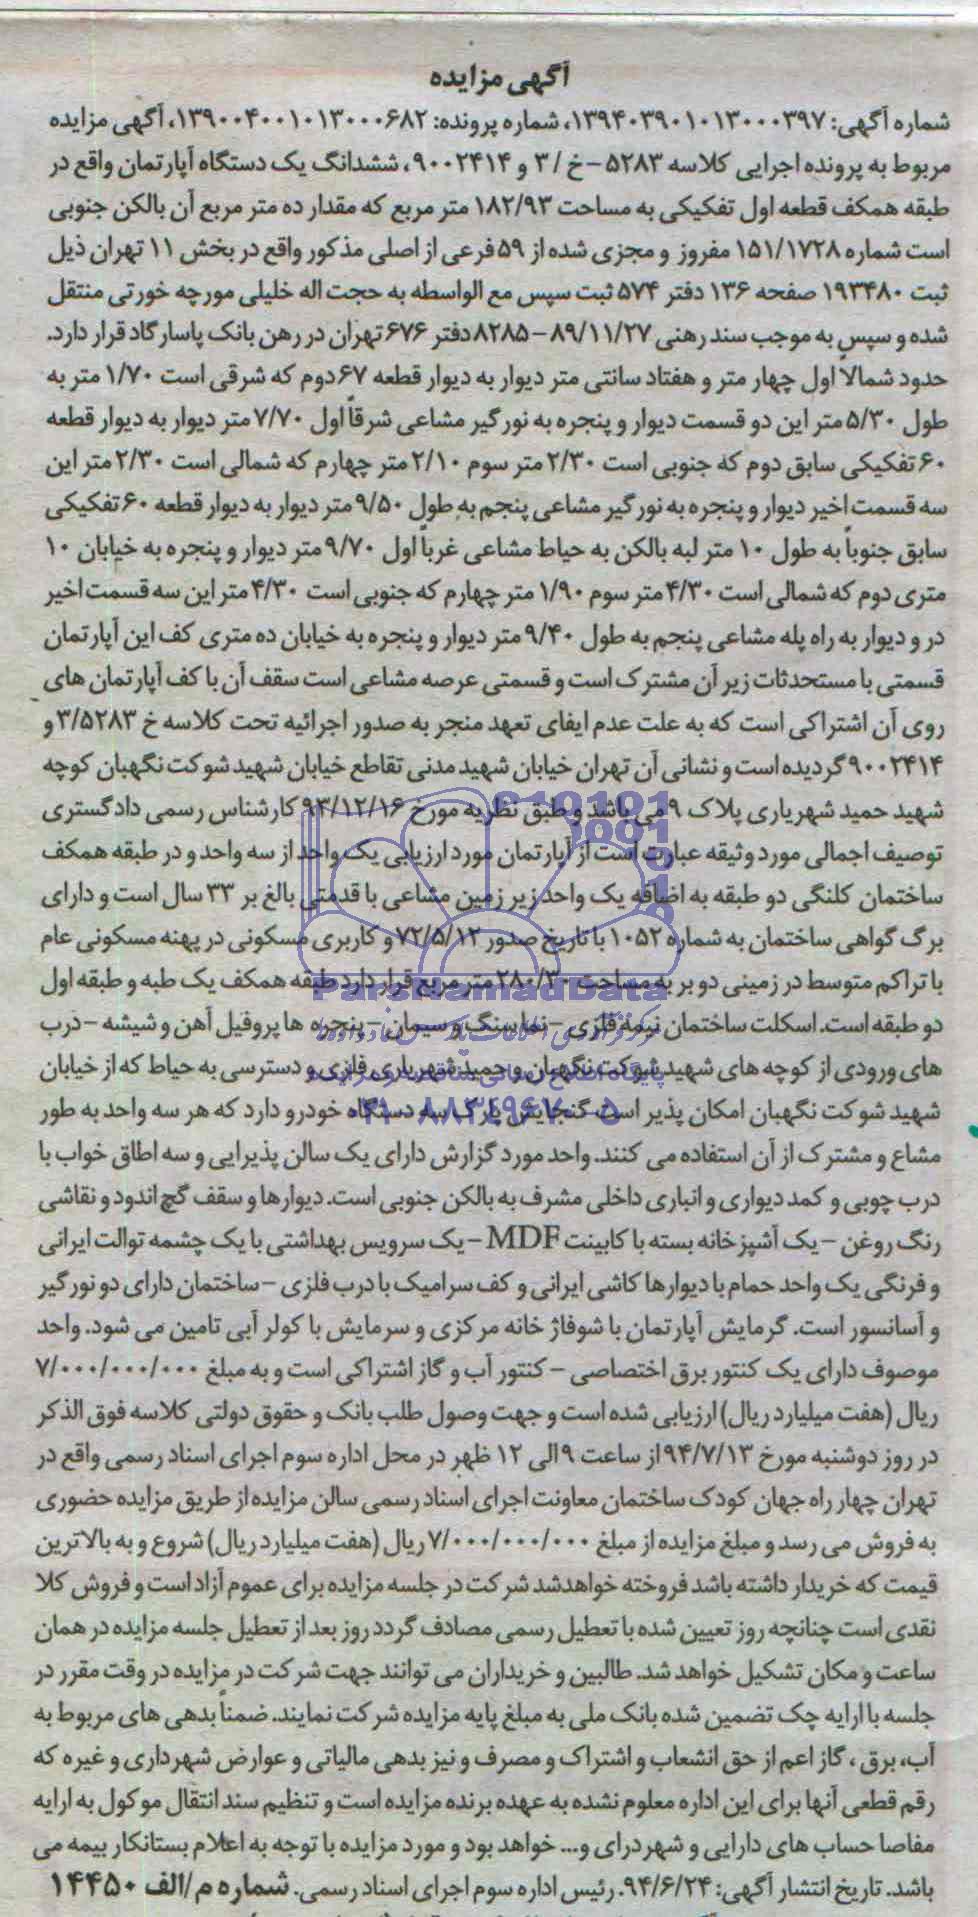 آگهی مزایده
شماره آگهی: ۱۳۹۴۰۳۹۰۱۰۱۳۰۰۰۳۹۷، شماره پرونده: ۱۳۹۰۰۴۰۰۱۰۱۳۰۰۰۶۸۲، آگهی مزایده
مربوط به پرونده اجرایی کلاسه ۵۲۸۳-خ/۳ و ۹۰۰۲۴۱۴، ششدانگ یک دستگاه آپارتمان واقع در
طبقه همکف قطعه اول تفکیکی به مساحت ۱۸۲/۹۳ متر مربع که مقدار ده متر مربع آن بالکن جنوبی
است شماره ۱۵۱/۱۷۲۸ مفروز و مجزی شده از ۵۹ فرعی از اصلی مذکور واقع در بخش ۱۱ تهران ذیل
ثبت ۱۹۳۴۸۰ صفحه ۱۳۶ دفتر ۵۷۴ ثبت سپس مع الواسطه به حجت اله خلیلی مورچه خورتی منتقل
شده و سپس به موجب سند رهنی ۸۹/۱۱/۲۷-۸۲۸۵ دفتر ۶۷۶ تهران در رهن بانک پاسارگاد قرار دارد.
حدود شمالاً اول چهار متر و هفتاد سانتی متر دیوار به دیوار قطعه ۶۷ دوم که شرقی است ۱/۷۰ متر به
طول ۵/۳۰ متر این دو قسمت دیوار و پنجره به نورگیر مشاعی شرقاً اول ۷/۷۰ متر دیوار به دیوار قطعه
۶۰ تفکیکی سابق دوم که جنوبی است ۲/۳۰ متر سوم ۲/۱۰ متر چهارم که شمالی است ۲/۳۰ متر این
سه قسمت اخیر دیوار و پنجره به نورگیر مشاعی پنجم به طول ۹/۵۰ متر دیوار به دیوار قطعه ۶۰ تفکیکی
سابق جنوباً به طول ۱۰ متر لبه بالکن به حیاط مشاعی غرباً اول ۹/۷۰ متر دیوار و پنجره به خیابان ۱۰
متری دوم که شمالی است ۴/۳۰ متر سوم ۱/۹۰ متر چهارم که جنوبی است ۴/۳۰ متر این سه قسمت اخیر
در و دیوار به راه پله مشاعی پنجم به طول ۹/۴۰ متر دیوار و پنجره به خیابان ده متری کف این آپارتمان
قسمتی با مستحدثات زیر آن مشترک است و قسمتی عرصه مشاعی است سقف آن با کف آپارتمان های
روی آن اشتراکی است که به علت عدم ایفای تعهد منجر به صدور اجرائیه تحت کلاسه خ ۳/۵۲۸۳ و
۹۰۰۲۴۱۴ گردیده است و نشانی آن تهران خیابان شهید مدنی تقاطع خیابان شهید شوکت نگهبان کوچه
شهید حمید شهریاری پلاک ۹ می باشد و طبق نظریه مورخ ۹۳/۱۲/۱۶ کارشناس رسمی دادگستری
توصیف اجمالی مورد وثیقه عبارت است از آپارتمان مورد ارزیابی یک واحد از سه واحد و در طبقه همکف
ساختمان کلنگی دو طبقه به اضافه یک واحد زیر زمین مشاعی با قدمتی بالغ بر ۳۳ سال است و دارای
برگ گواهی ساختمان به شماره ۱۰۵۲ با تاریخ صدور ۷۲/۵/۱۲ و کاربری مسکونی در پهنه مسکونی عام
با تراکم متوسط در زمینی دو بر به مساحت ۲۸۰/۳۰ متر مربع قرار دارد طبقه همکف یک طبه و طبقه اول
دو طبقه است. اسکلت ساختمان نیمه فلزی - نما سنگ و سیمان - پنجره ها پروفیل آهن و شیشه - درب
های ورودی از کوچه های شهید شوکت نگهبان و حمید شهریاری فلزی و دسترسی به حیاط که از خیابان
شهید شوکت نگهبان امکان پذیر است گنجایش پارک سه دستگاه خودرو دارد که هر سه واحد به طور
مشاع و مشترک از آن استفاده می کنند. واحد مورد گزارش دارای یک سالن پذیرایی و سه اطاق خواب با
درب چوبی و کمد دیواری و انباری داخلی مشرف به بالکن جنوبی است. دیوارها و سقف گچ اندود و نقاشی
رنگ روغن - یک آشپزخانه بسته با کابینت MDF - یک سرویس بهداشتی با یک چشمه توالت ایرانی
و فرنگی یک واحد حمام با دیوارها کاشی ایرانی و کف سرامیک با درب فلزی - ساختمان دارای دو نورگیر
و آسانسور است. گرمایش آپارتمان با شوفاژ خانه مرکزی و سرمایش با کولر آبی تامین می شود. واحد
موصوف دارای یک کنتور برق اختصاصی - کنتور آب و گاز اشتراکی است و به مبلغ ۷/۰۰۰/۰۰۰/۰۰۰
ریال (هفت میلیارد ریال) ارزیابی شده است و جهت وصول طلب بانک و حقوق دولتی کلاسه فوق الذکر
در روز دوشنبه مورخ ۹۴/۷/۱۳ از ساعت ۹ الی ۱۲ ظهر در محل اداره سوم اجرای اسناد رسمی واقع در
تهران چهار راه جهان کودک ساختمان معاونت اجرای اسناد رسمی سالن مزایده از طریق مزایده حضوری
به فروش می رسد و مبلغ مزایده از مبلغ ۷/۰۰۰/۰۰۰/۰۰۰ ریال (هفت میلیارد ریال) شروع و به بالاترین
قیمت که خریدار داشته باشد فروخته خواهد شد شرکت در جلسه مزایده برای عموم آزاد است و فروش کلا
نقدی است چنانچه روز تعیین شده با تعطیل رسمی مصادف گردد روز بعد از تعطیل جلسه مزایده در همان
ساعت و مکان تشکیل خواهد شد. طالبین و خریداران می توانند جهت شرکت در مزایده در وقت مقرر در
جلسه با ارایه چک تضمین شده بانک ملی به مبلغ پایه مزایده شرکت نمایند. ضمناً بدهی های مربوط به
آب، برق، گاز اعم از حق انشعاب و اشتراک و مصرف و نیز بدهی مالیاتی و عوارض شهرداری و غیره که
رقم قطعی آنها برای این اداره معلوم نشده به عهده برنده مزایده است و تنظیم سند انتقال موکول به ارایه
مفاصا حساب های دارایی و شهردرای و... خواهد بود و مورد مزایده با توجه به اعلام بستانکار بیمه می
باشد. تاریخ انتشار آگهی: ۹۴/۶/۲۴. رئیس اداره سوم اجرای اسناد رسمی. شماره م/الف ۱۴۴۵۰
ParsNamadData
۰۲۱-۸۸۳۴۹۶۷۰-۵